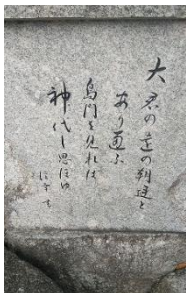 大君の遠の朝廷と
あり通ふ
島門を見れば
神代し思ほゆ